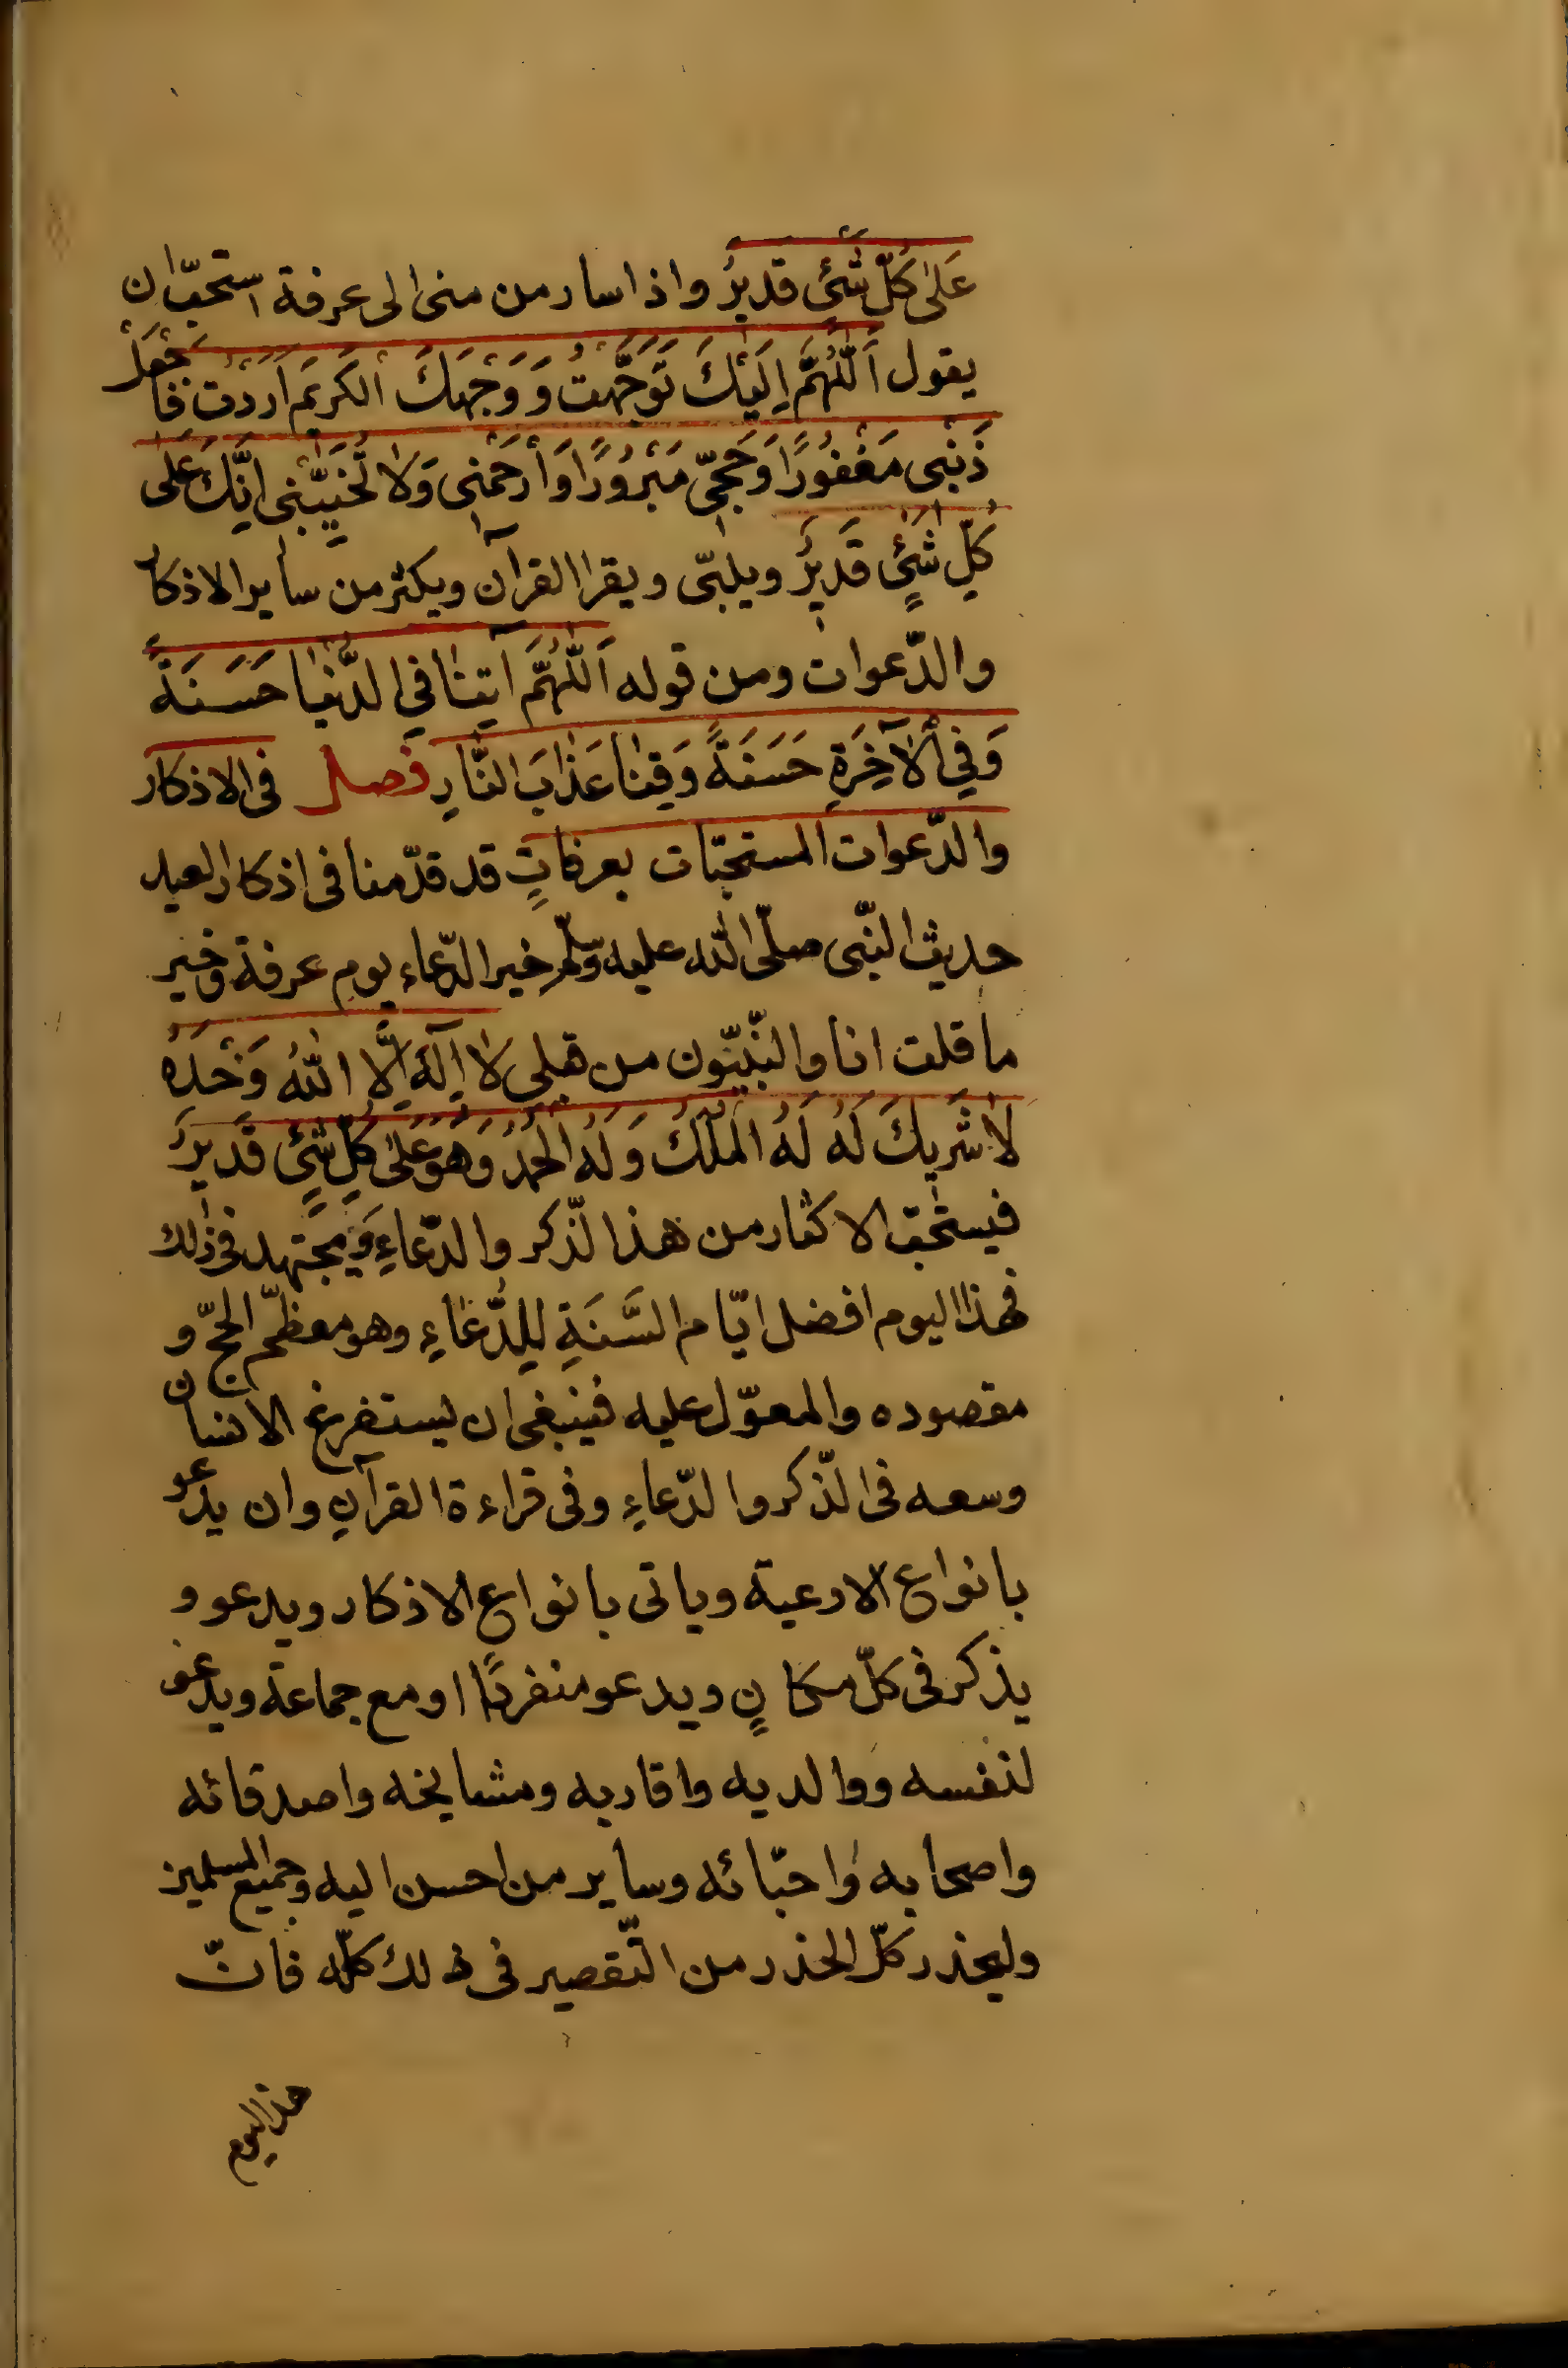 عَلىٰ كُلِّ شَئٍ قديرٌ واذا سار من منى الى عرفة استحبّ ان
يقول اَللّٰهُمَّ اِلَيْكَ تَوَجَّهْتُ وَوَجْهَكَ الْكَرِيْمَ اَرَدْتُ فَاجْعَلْ
ذَنْبى مَغْفُورًا وَحَجّى مَبْرُورًا وَارْحَمْنى وَلَا تُخَيِّبْنى اِنَّكَ عَلىٰ
كُلِّ شَئٍ قَدِيرٌ ويلبّى ويقرا القرآن ويكثر من ساير الاذكار
والدّعوات ومن قوله اَللّٰهُمَّ آتِنٰا فِي الدُّنْيٰا حَسَنَةً
وَفِي الْآخِرَةِ حَسَنَةً وَقِنٰا عَذٰابَ النّٰارِ فصل فى الاذكار
والدّعوات المستحبّات بعرفاتٍ قد قدّمنا فى اذكار العيد
حديث النّبى صلّى اللّٰه عليه وسلّم خير الدّعاء يوم عرفة وخير
ما قلت انا والنّبيّون من قبلى لٰا اِلٰهَ اِلَّا اللّٰهُ وَحْدَهُ
لٰا شَرِيكَ لَهُ لَهُ الْمُلْكُ وَلَهُ الْحَمْدُ وَهُوَ عَلىٰ كُلِّ شَئٍ قَدِيرٌ
فيستحبّ الاكثار من هٰذا الذّكر والدّعاءِ وَيجتهد فى ذٰلك
فهذا اليوم افضل ايّام السَّنَةِ لِلدُّعٰاءِ وهو معظم الحجّ و
مقصوده والمعوّل عليه فينبغى ان يستفرغ الانسان
وسعه فى الذّكر والدّعاءِ وفى قراءة القرآنِ وان يدعو
بانواع الادعية وياتى بانواع الاذكار ويدعو و
يذكر فى كلّ مكانٍ ويدعو منفردًا او مع جماعة ويدعو
لنفسه ووالديه واقاربه ومشايخه واصدقائه
واصحابه واحبّائه وساير من احسن اليه وجميع المسلمين
وليحذر كلّ الحذر من التّقصير فى ذلك كلّه فانّ
هذا اليوم